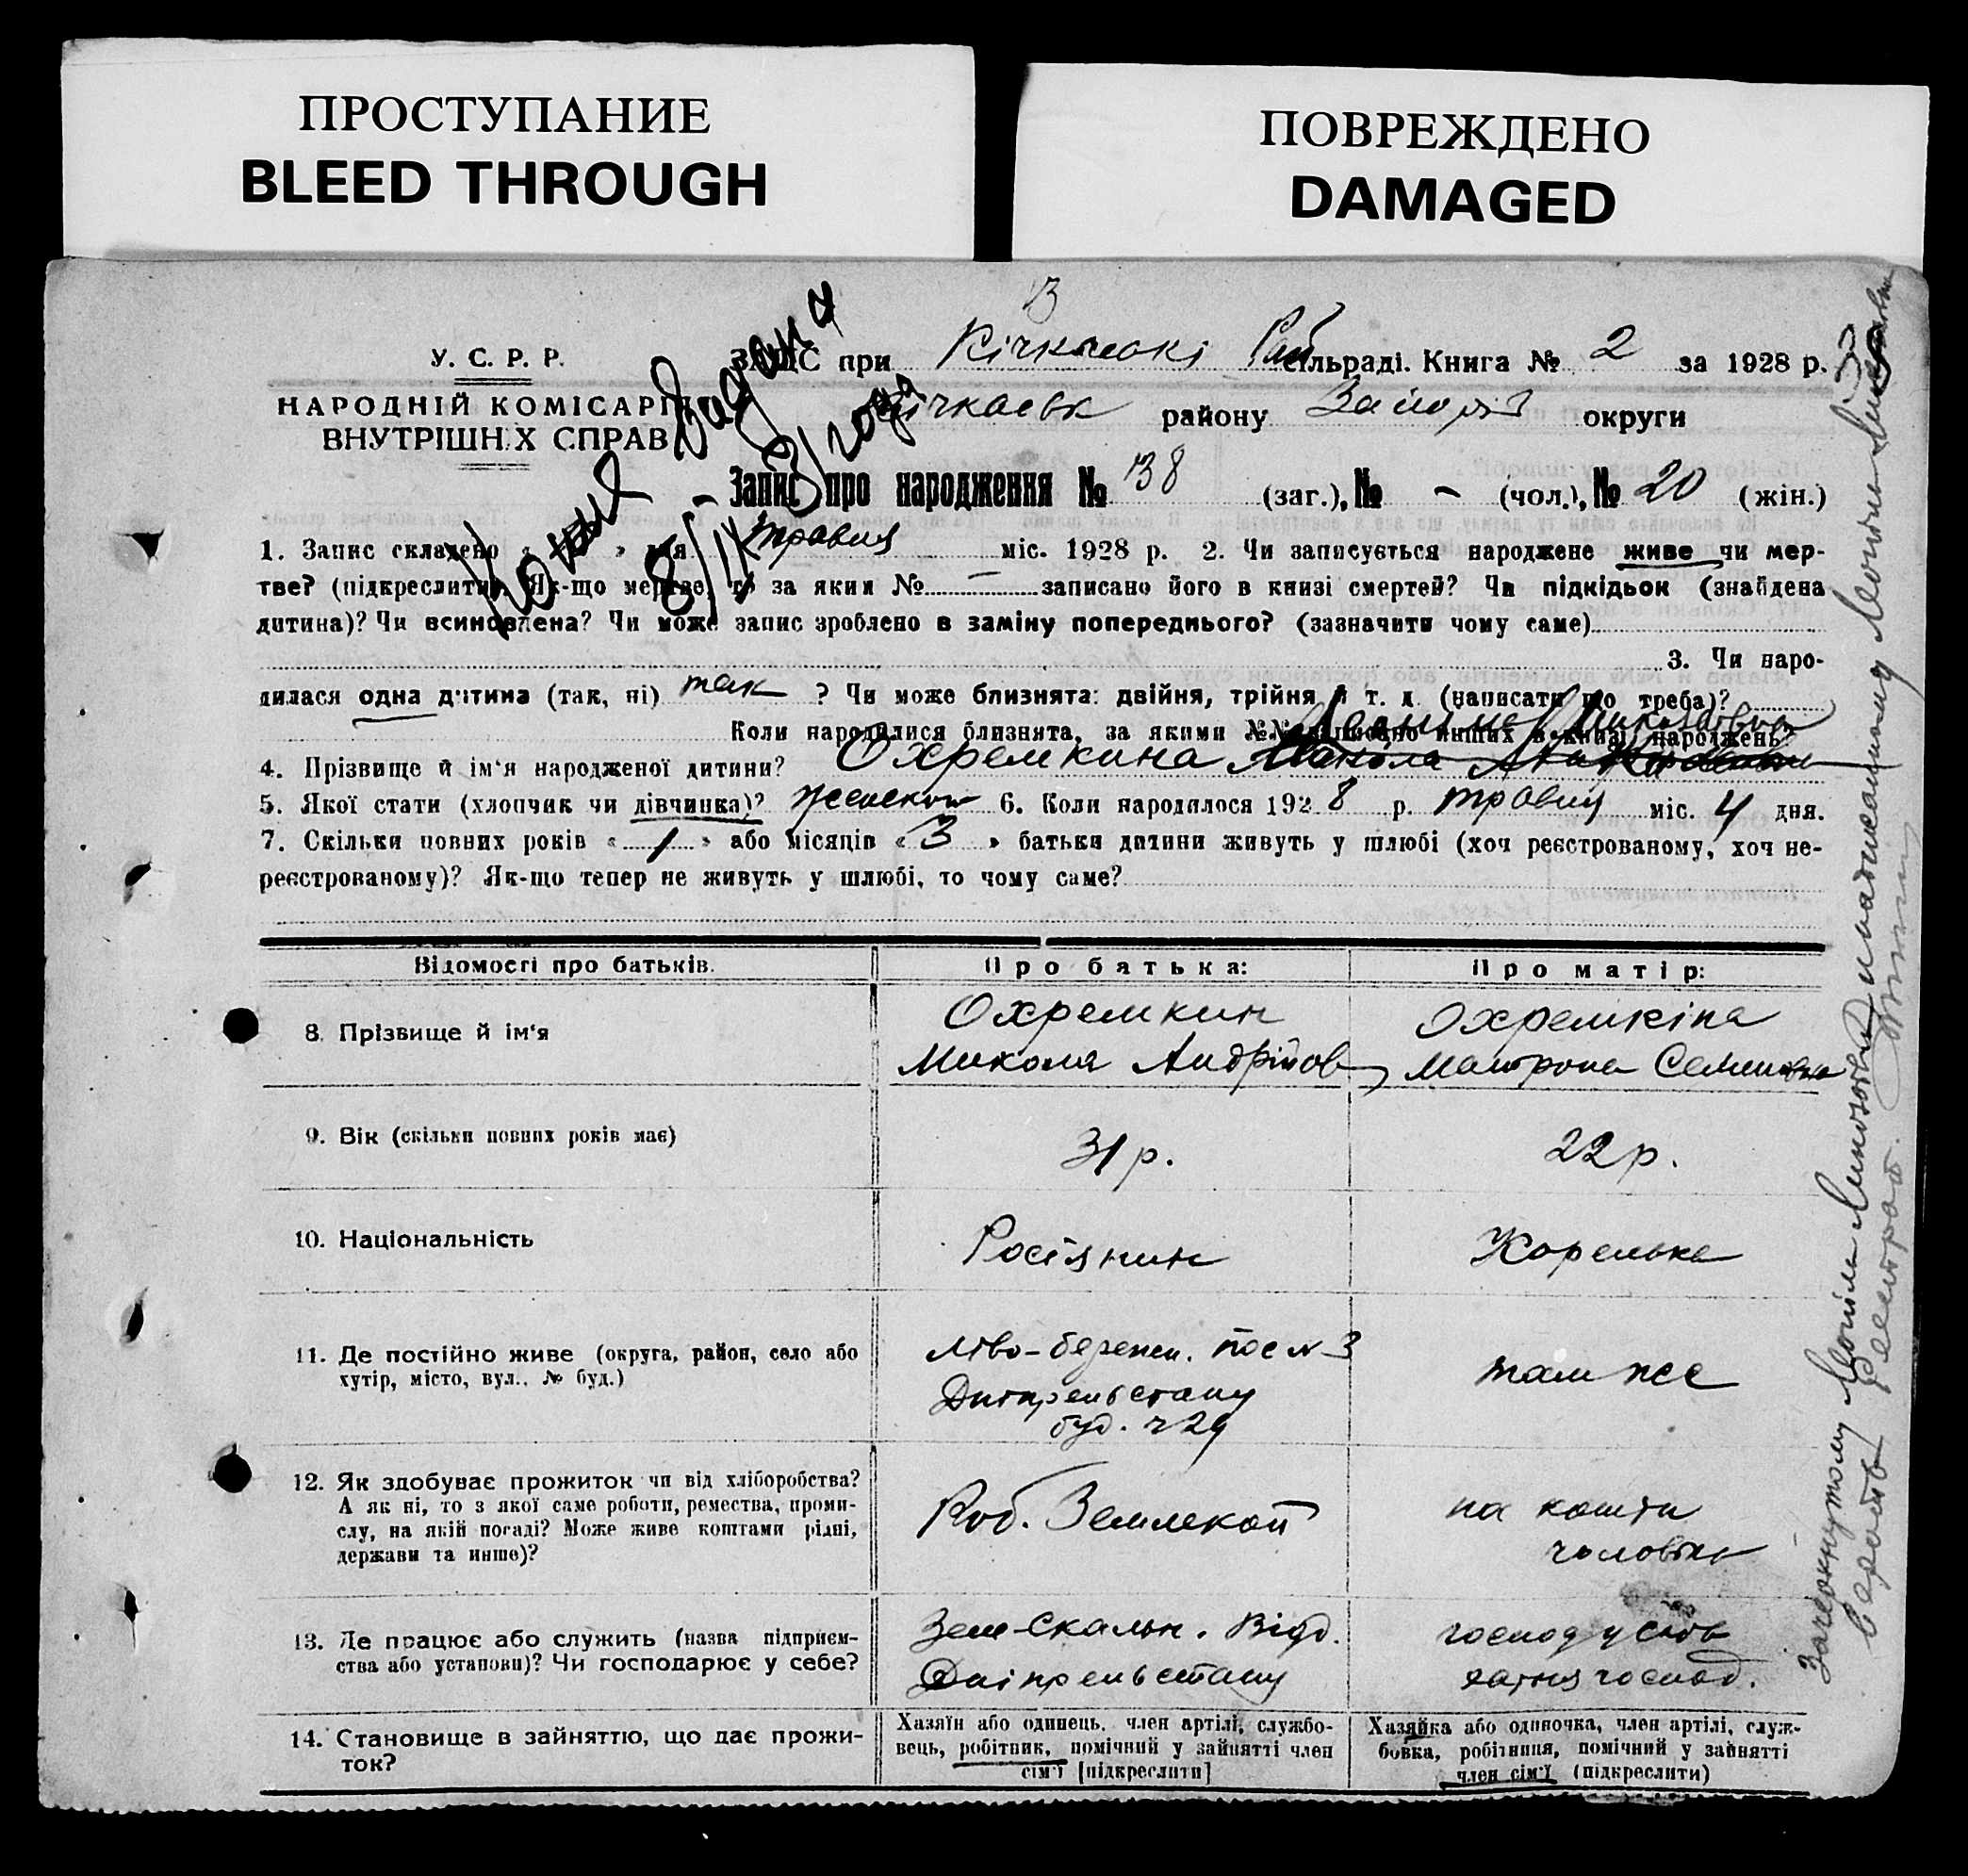 ПРОСТУПАНИЕ
BLEED THROUGH
ПОВРЕЖДЕНО
DAMAGED
У. С. Р. Р.
НАРОДНІЙ КОМІСАРІЯТ
ВНУТРІШНІХ СПРАВ
ЗАГС при Сільраді. Книга № 2 за 1928 р.
району округи
Копия видана
Запис про народження № 38 (заг.), № - (чол.), № 20 (жін.)
1. Запис складено « » дня травня міс. 1928 р. 2. Чи записується народжене живе чи мер-
тве? (підкреслити). Як-що мертве, то за яким № — записано його в книзі смертей? Чи підкідьок (знайдена
дитина)? Чи всиновлена? Чи може запис зроблено в заміну попереднього? (зазначити чому саме)
3. Чи наро-
дилася одна дитина (так, ні) так ? Чи може близнята: двійня, трійня й т. д. (написати що треба)?
Коли народилися близнята, за якими №№ записано инших в книзі народжень?
4. Прізвище й ім'я народженої дитини? Охремкина
5. Якої стати (хлопчик чи дівчинка)? 6. Коли народилося 1928 р. травня міс. 4 дня.
7. Скільки повних років « 1 » або місяців « 3 » батьки дитини живуть у шлюбі (хоч реєстрованому, хоч не-
реєстрованому)? Як-що тепер не живуть у шлюбі, то чому саме?
Відомості про батьків. Про батька: Про матір:
8. Прізвище й ім'я Охремкин Охремкіна
Микола Андрійов Матрона Семеновна
9. Вік (скільки повних років має) 31 р. 22 р.
10. Національність Росіянин Корелька
11. Де постійно живе (округа, район, село або Ліво-бережн. пос № 3 там же
хутір, місто, вул., № буд.) Дніпрельстану
буд. ч 29
12. Як здобуває прожиток чи від хліборобства?
А як ні, то з якої саме роботи, ремества, проми- Роб. Землекоп на кошти
слу, на якій посаді? Може живе коштами рідні, чоловіка
держави та инше)?
13. Де працює або служить (назва підприєм- Зем-Скальн. Відд.
ства або установи)? Чи господарює у себе? Дніпрельстану хатня господ.
14. Становище в зайняттю, що дає прожи-
ток?
Хазяїн або одинець, член артілі, службо-
вець, робітник, помічний у зайнятті член
сім'ї [підкреслити]
Хазяйка або одиночка, член артілі, служ-
бовка, робітниця, помічний у зайнятті
член сім'ї (підкреслити)